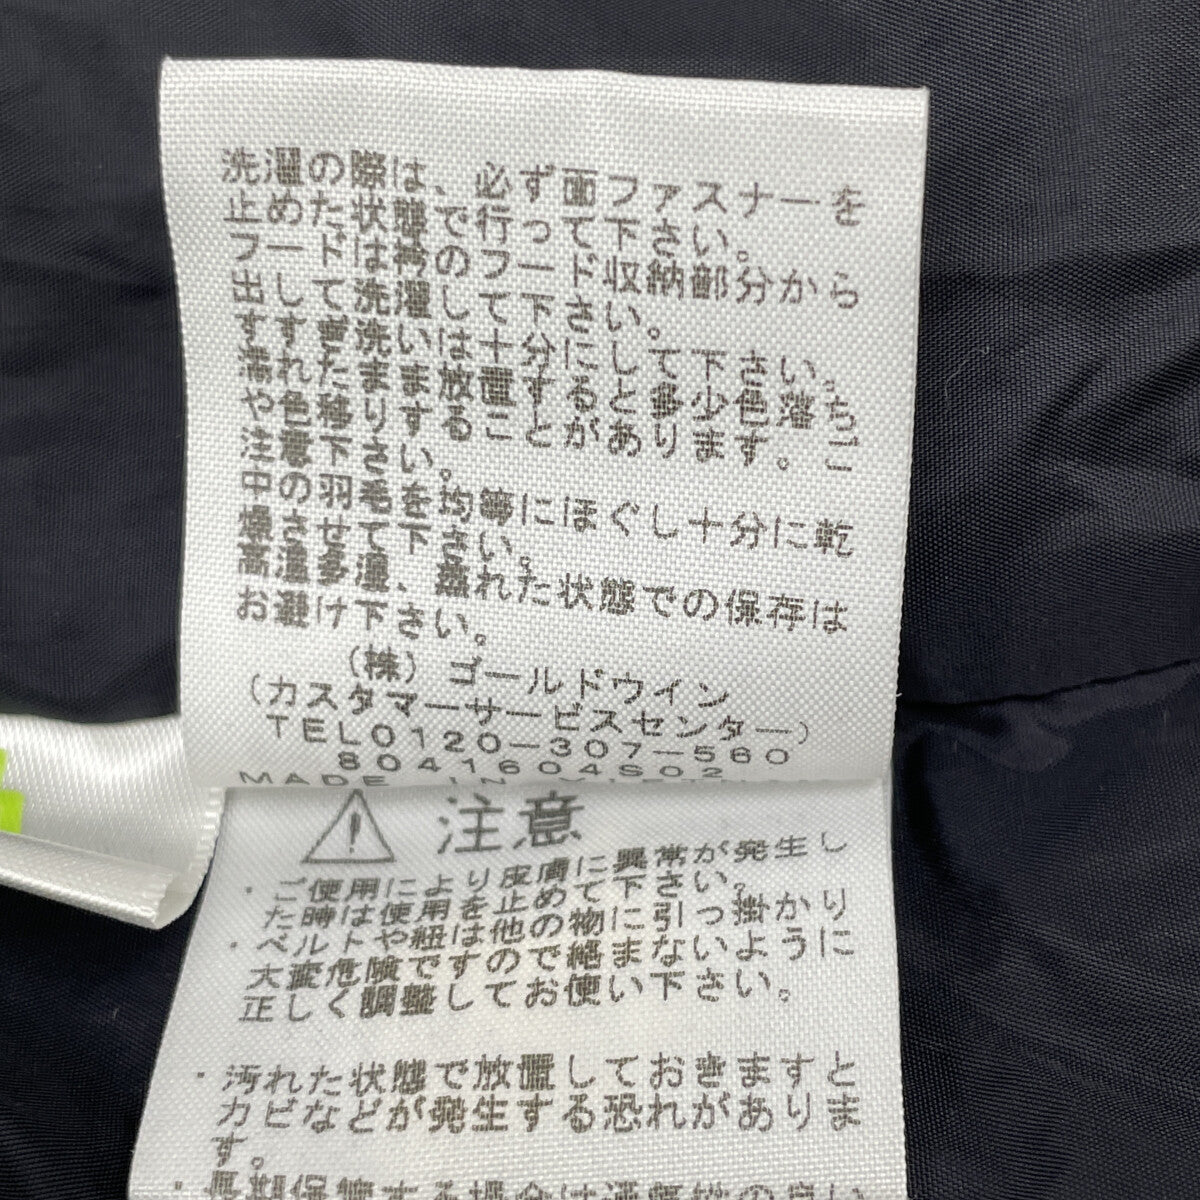 洗濯の際は、必ず面ファスナーを
止めた状態で行って下さい。
フードは衿のフード収納部分から
出して洗濯して下さい。
すすぎ洗いは十分にして下さい。
濡れたまま放置すると多少色落ち
や色移りする ことがあります。ご
注意下さい。
中の羽毛を均等にほぐし十分に乾
燥させて下さい。
高温多湿、濡れた状態での保存は
お避け下さい。
(株)ゴールドウイン
(カスタマーサービスセンター)
TEL0120-307-560
8041604S02
MADE IN
注意
・ご使用により皮膚に異常が発生し
た時は使用を止めて下さい。
・ベルトや紐は他の物に引っ掛かり
大変危険ですので絡まないように
正しく調整してお使い下さい。
・汚れた状態で放置しておきますと
カビなどが発生する恐れがありま
す。
・長期保管する場合は通気性の良い